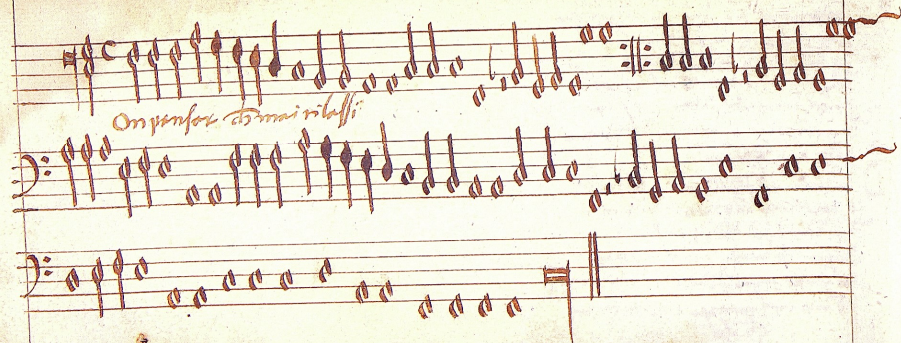 On pensar ch mai ti lassi